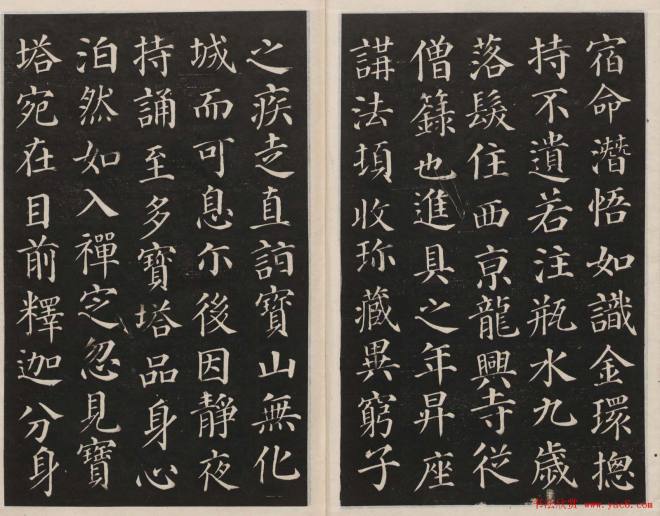 宿命潛悟如識金環揔
持不遺若注瓶水九歲
落髮住西京龍興寺從
僧籙也進具之年昇座
講法頃收珎藏異窮子
之疾走直詣寶山無化
城而可息尒後因靜夜
持誦至多寶塔品身心
泊然如入禪定忽見寶
塔宛在目前釋迦分身
书法欣赏 www.yac8.com